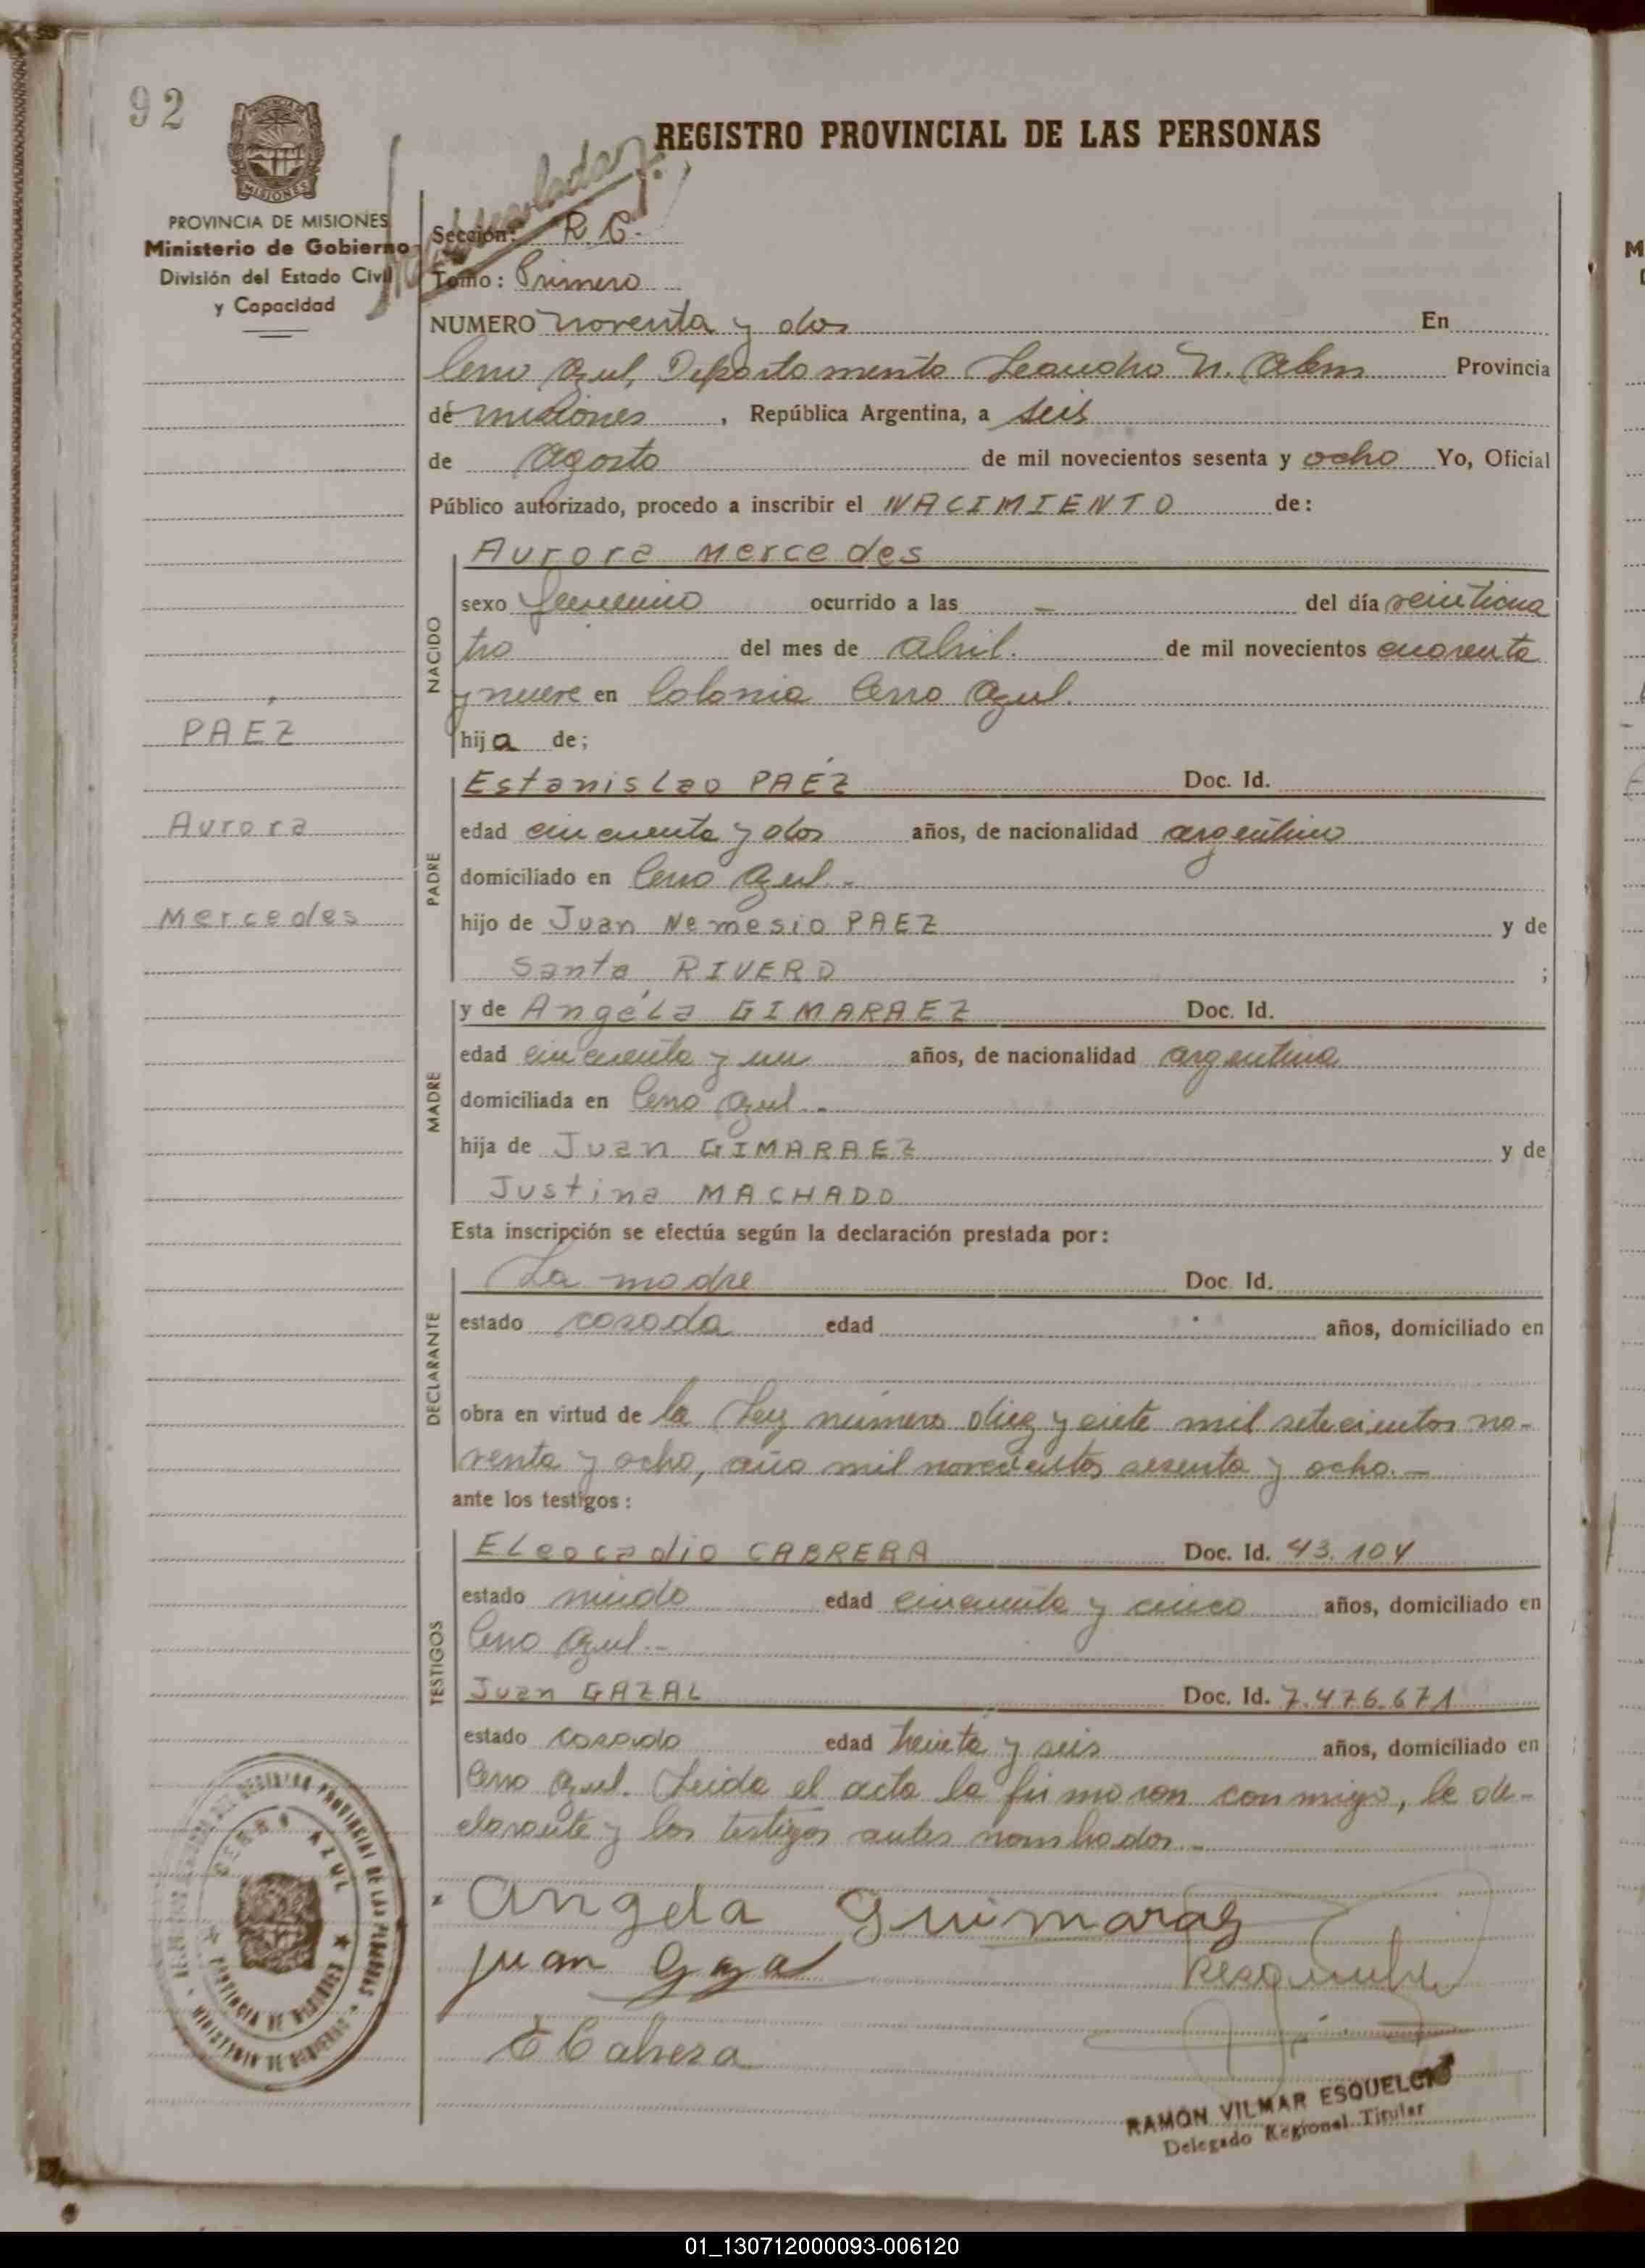 92
PROVINCIA DE MISIONES
Ministerio de Gobierno
División del Estado Civil
y Capacidad
REGISTRO PROVINCIAL DE LAS PERSONAS
Sección: R. C.
Tomo: Primero
NUMERO noventa y dos En
Cerro Azul, Departamento Leandro N. Alem Provincia
de misiones, República Argentina, a seis
de Agosto de mil novecientos sesenta y ocho Yo, Oficial
Público autorizado, procedo a inscribir el NACIMIENTO de:
Aurora Mercedes
NACIDO
sexo femenino ocurrido a las — del día veinticua
tro del mes de abril. de mil novecientos cuarenta
y nueve en Colonia Cerro Azul.
hija de;
PAÉZ
Aurora
Mercedes
PADRE
Estanislao PAÉZ Doc. Id.
edad cincuenta y dos años, de nacionalidad argentino
domiciliado en Cerro Azul.-
hijo de Juan Nemesio PAEZ y de
Santa RIVERO ;
MADRE
y de Angéla GIMARAEZ Doc. Id.
edad cincuenta y un años, de nacionalidad argentina
domiciliada en Cerro Azul.-
hija de Juan GIMARAEZ y de
Justina MACHADO
Esta inscripción se efectúa según la declaración prestada por:
DECLARANTE
La madre Doc. Id.
estado casada edad años, domiciliado en
obra en virtud de la Ley número diez y siete mil setecientos no-
venta y ocho, año mil novecientos sesenta y ocho.-
ante los testigos:
TESTIGOS
Eleocadio CABRERA Doc. Id. 43.104
estado viudo edad cincuenta y cinco años, domiciliado en
Cerro Azul.-
Juan GAZAL Doc. Id. 7.476.671
estado casado edad treinta y seis años, domiciliado en
Cerro Azul. Leida el acta la firmaron conmigo, la de-
clarante y los testigos antes nombrados.-
Angela Guimaraz
juan Gazal
E Cabrera
RAMON VILMAR ESQUELCI
Delegado Regional Titular
CERRO AZUL
PROVINCIA DE MISIONES
MINISTERIO DE GOBIERNO
01_130712000093-006120